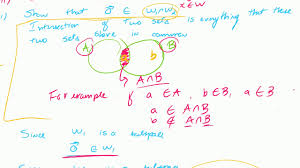 Show that 0⃗ ∈ W₁∩W₂ x∈W
Intersection of two sets is everything that these
two sets have in common
A B
a b
A∩B
For example if a ∈ A, b∈B, a ∈ B
a ∈ A∩B
b ∉ A∩B
Since W₁ is a subspace
0⃗ ∈ W₁